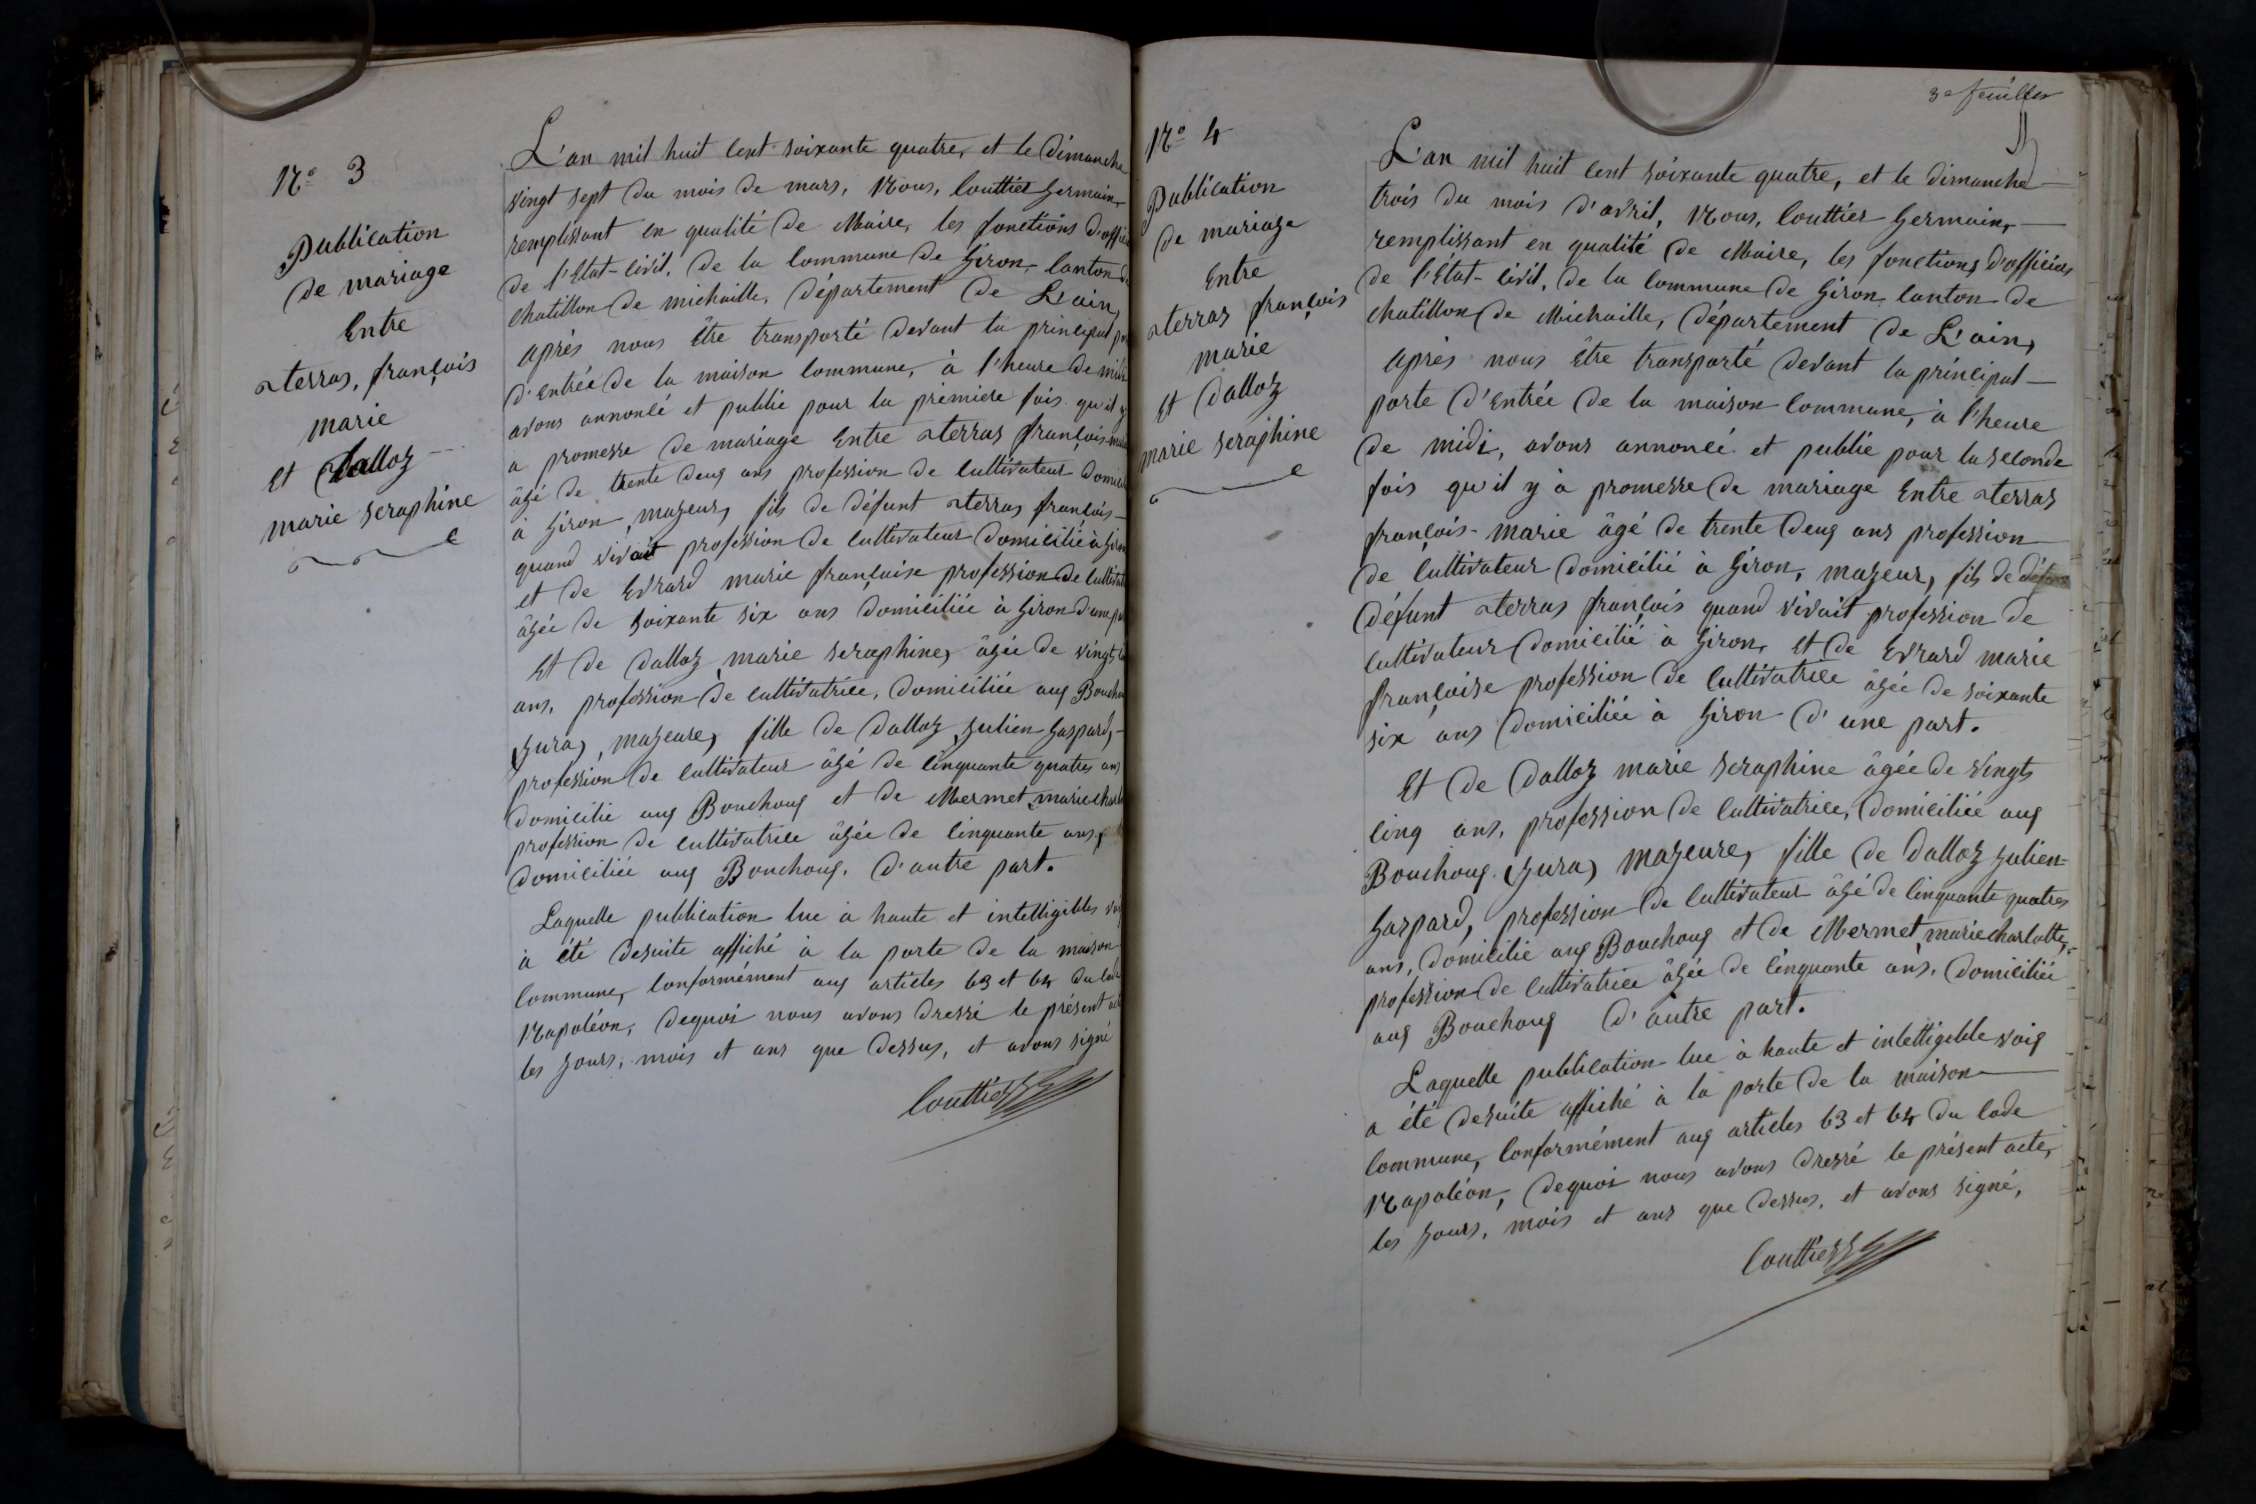 N° 3
Publication
de mariage
Entre
terras, françois
marie
Et Dalloz
marie seraphine
L'an mil huit cent soixante quatre, et le dimanche
vingt sept du mois de mars, Nous, Couttier Germain,
remplissant en qualité de Maire, les fonctions d'offici
de l'Etat-Civil, de la Commune de Giron, Canton d
chatillon de michaille, département de L'ain,
après nous être transporté devant la principal po
d'entrée de la maison Commune, à l'heure de midi
avons annoncé et publié pour la première fois qu'il y
a promesse de mariage Entre terras françois-marie
âgé de trente deux ans profession de Cultivateur domici
à Giron, majeur, fils de défunt terras françois
quand vivait profession de Cultivateur domicilié à Giron
et de Evrard marie françoise profession de Cultivat
âgée de Soixante six ans domiciliée à Giron d'une par
Et de Dalloz marie seraphine, âgée de vingts
ans, profession de cultivatrice, domiciliée aux Bouchou
(Jura), majeure, fille de Dalloz Julien Gaspard,
profession de Cultivateur âgé de Cinquante quatres ans
domicilié aux Bouchoux et de Mermet, marie charl
profession de cultivatrice âgée de Cinquante ans,
domiciliée aux Bouchoux, d'autre part.
Laquelle publication lue à haute et intelligibles voi
à été desuite affiché à la porte de la maison
Commune, Conformément aux articles 63 et 64 du Code
Napoléon, dequoi nous avons dressé le présent act
les jours, mois et ans que dessus, et avons signé
Couttier
3e feuillet
N° 4
Publication
de mariage
Entre
terras françois
marie
Et Dalloz
marie seraphine
L'an mil huit cent soixante quatre, et le dimanche
trois du mois d'avril, Nous, Couttier Germain,
remplissant en qualité de Maire, les fonctions d'officier
de l'État-Civil, de la Commune de Giron Canton de
chatillon de Michaille, département de L'ain,
après nous être transporté devant la principal
porte d'Entrée de la maison Commune, à l'heure
de midi, avons annoncé et publié pour la seconde
fois qu'il y à promesse de mariage Entre terras
françois-marie âgé de trente deux ans profession
de Cultivateur domicilié à Giron, majeur, fils de défunt
défunt terras françois quand vivait profession de
Cultivateur domicilié à Giron, et de Evrard marie
françoise profession de Cultivatrice âgée de soixante
six ans domiciliée à Giron d'une part.
Et de Dalloz marie seraphine âgée de vingts
cinq ans, profession de Cultivatrice, domiciliée aux
Bouchoux (Jura) majeure, fille de Dalloz Julien-
Gaspard, profession de Cultivateur âgé de Cinquante quatres
ans, domicilié aux Bouchoux et de Mermet, marie charlotte,
profession de Cultivatrice âgée de Cinquante ans, domiciliée
aux Bouchoux d'autre part.
Laquelle publication lue à haute et intelligible voix
a été desuite affiché à la porte de la maison
Commune, Conformément aux articles 63 et 64 du Code
Napoléon, dequoi nous avons dressé le présent acte,
les jours, mois et ans que dessus, et avons signé,
Couttier